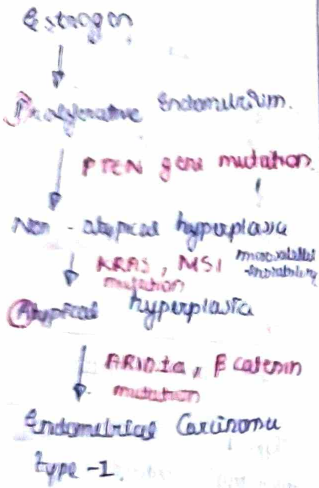 Estrogen
Proliferative Endometrium.
PTEN gene mutation.
Non - atypical hyperplasia
KRAS, MSI microsatellet
mutation -instability
Atypical hyperplasia
ARID1a, β catenin
mutation
Endometrial Carcinoma
type -1.